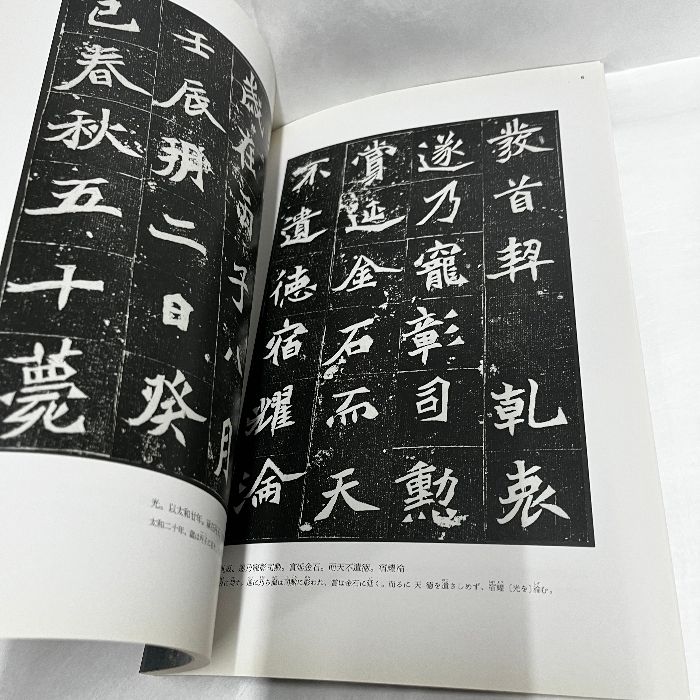 6
發首契 乾衷
遂乃寵彰司勳
賞延金石而天
不遺德宿耀淪
遂乃寵彰司勳。賞延金石。而天不遺德。宿耀淪
遂に乃ち寵は司勳に彰われ、賞は金石に延く。而るに 天 德を遺さしめず、宿耀〔光を〕淪む。
歲在丙子八月
壬辰朔二日癸
巳春秋五十薨
光。以太和廿年。歲
太和二十年、歲は丙子に在り